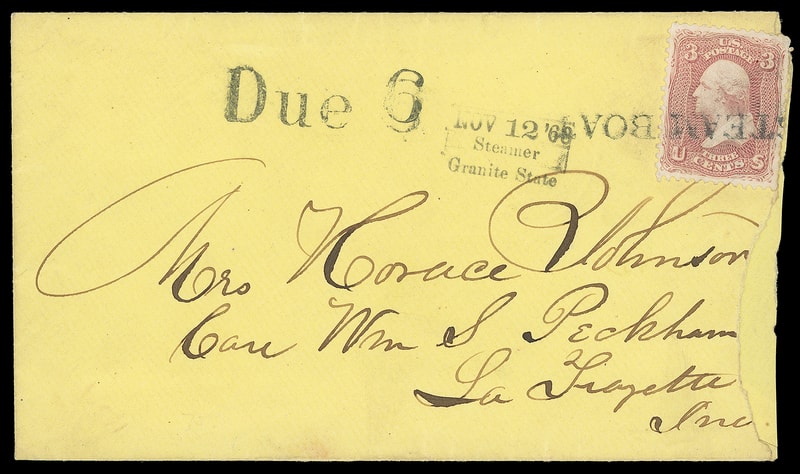 Due 6
NOV 12
Steamer
Granite State
STEAM-BOAT
3 U.S. 3
POSTAGE
U THREE S
CENTS
Mrs Horace Johnson
Care Wm S Peckham
La Frayette
Ind